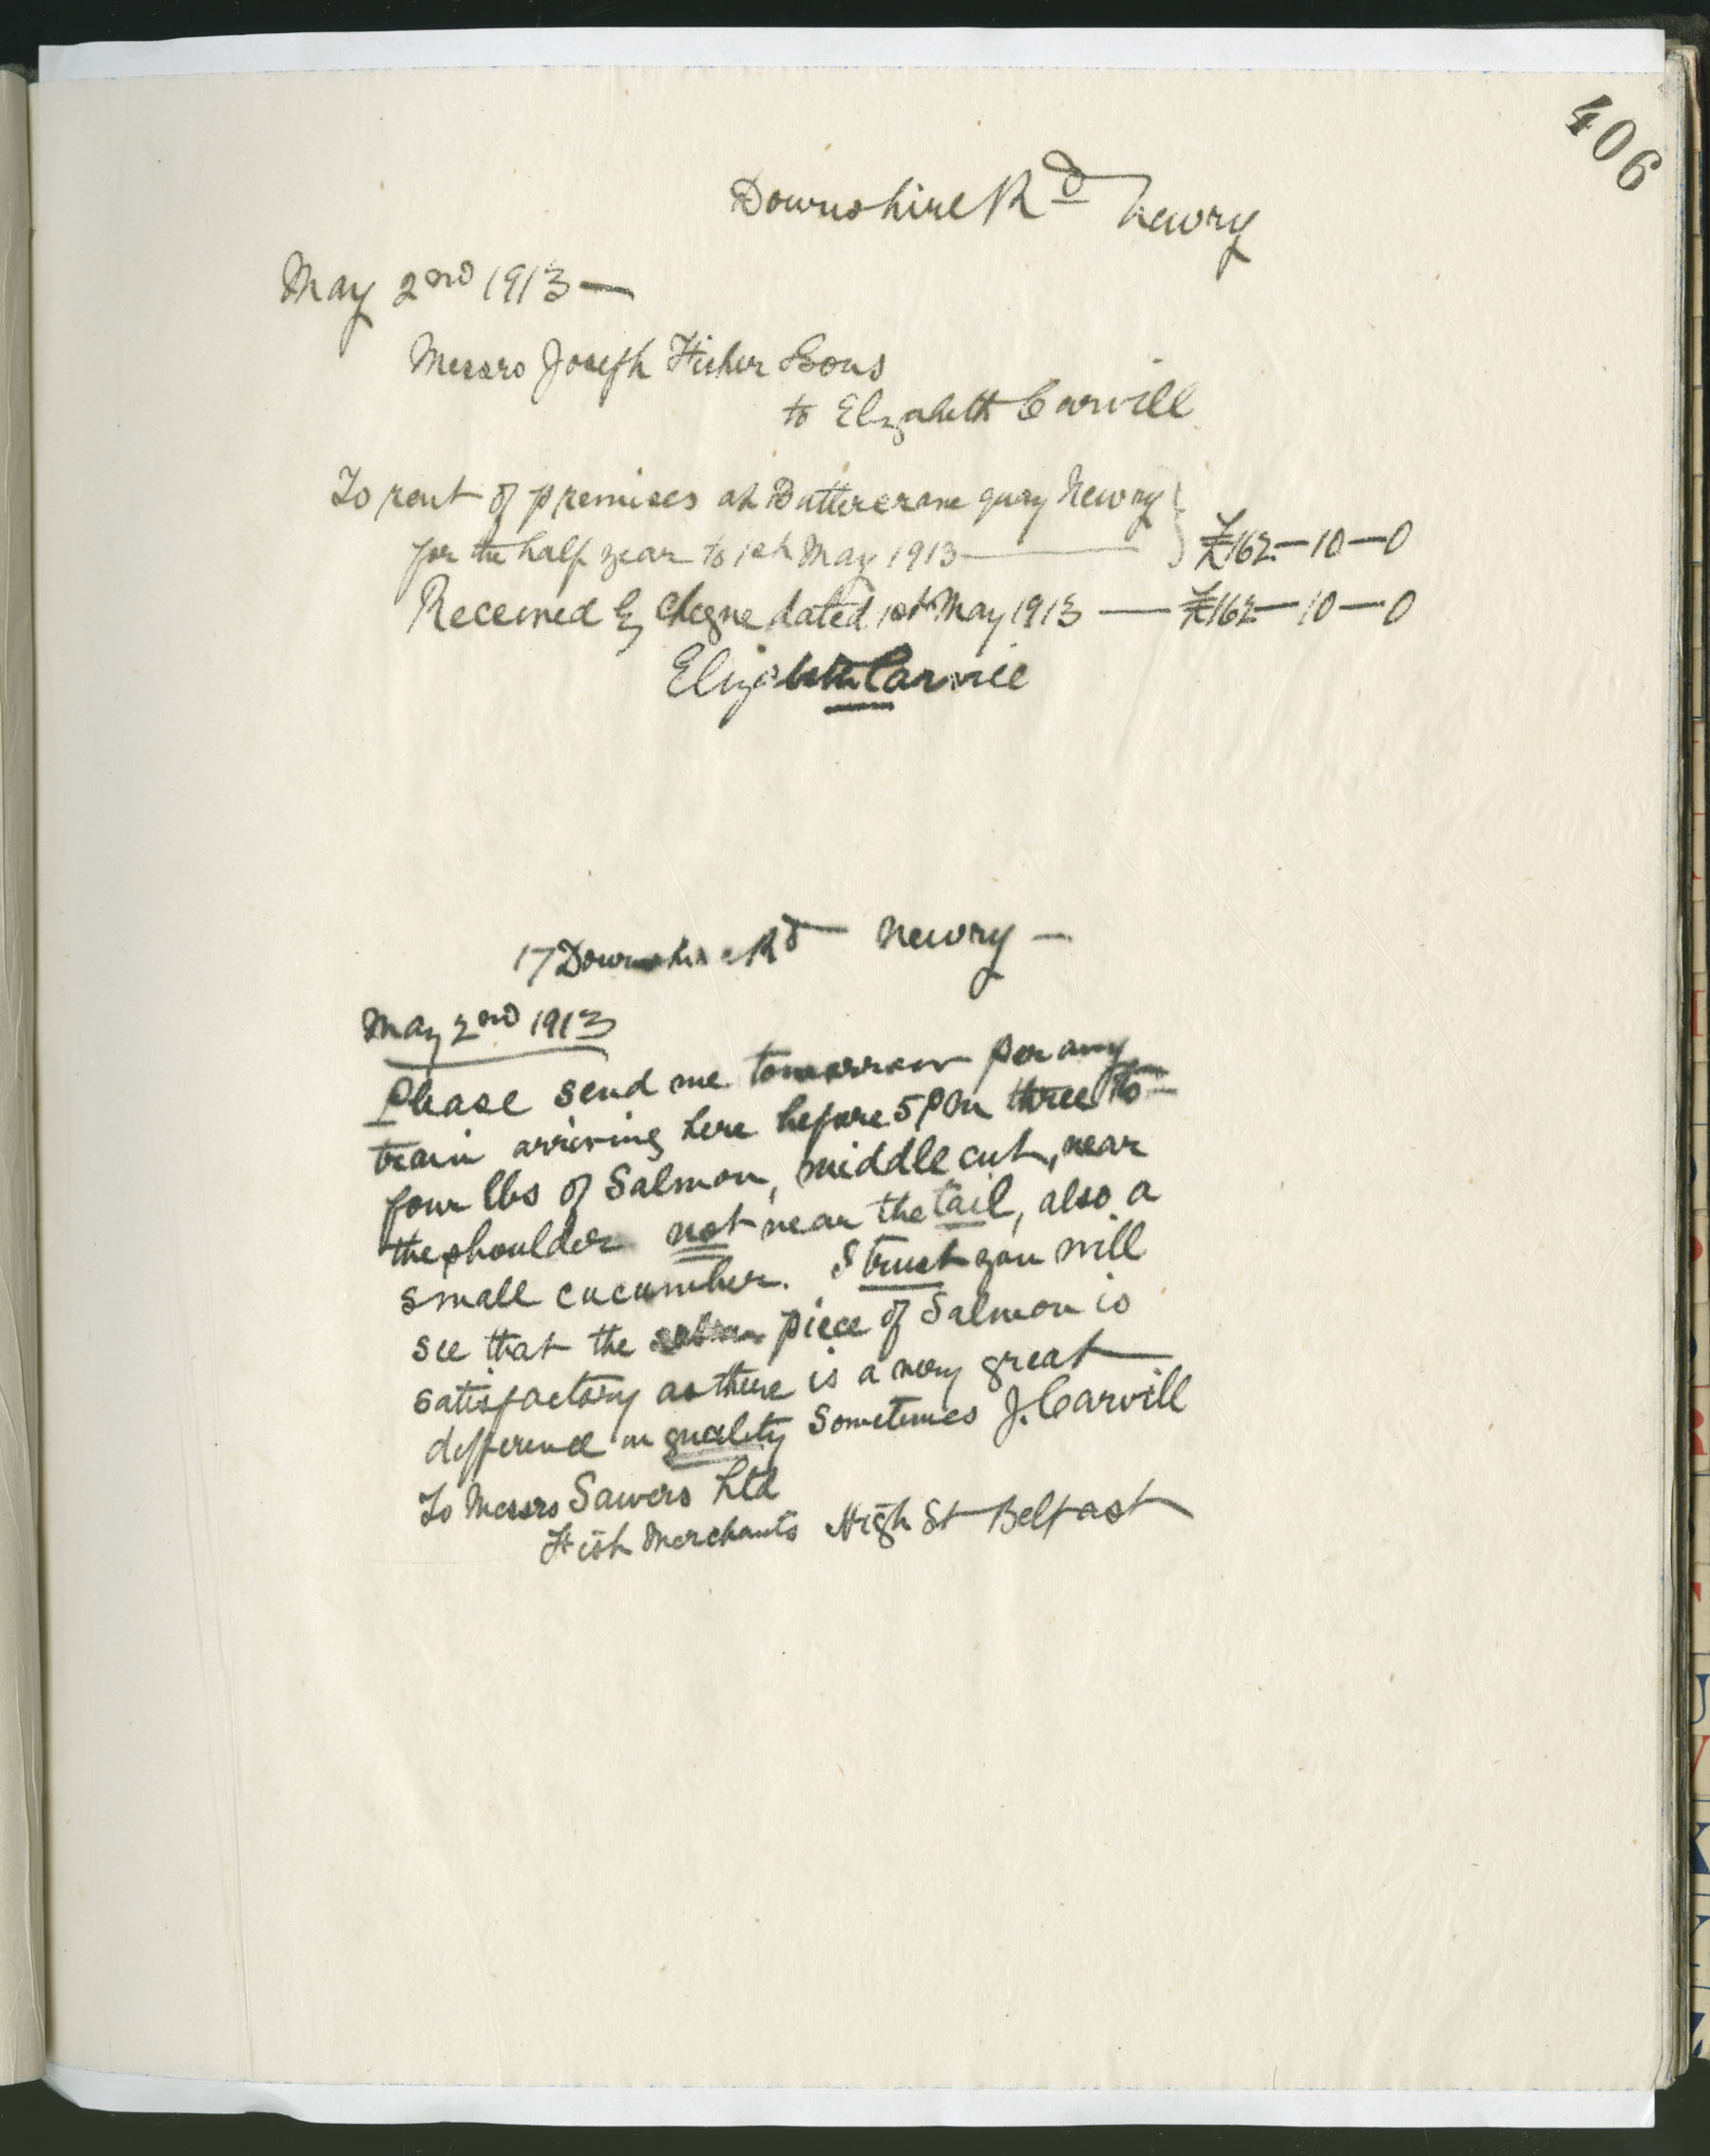 406
Downshire Rd Newry
May 2nd 1913 —
Messrs Joseph Fisher Sons
to Elizabeth Carvill
To rent of premises at Buttercrane quay Newry
for the half year to 1st May 1913 — £162—10—0
Received by cheque dated 1st May 1913 — £162—10—0
Elizabeth Carvill
17 Downshire Rd Newry —
May 2nd 1913
Please send me tomorrow per any
train arriving here before 5 pm three to
four lbs of Salmon, middle cut, near
the shoulder not near the tail, also a
small cucumber. I trust you will
see that the piece of Salmon is
satisfactory as there is a very great
difference in quality sometimes J. Carvill
To Messrs Sawers Ltd
Fish Merchants High St Belfast